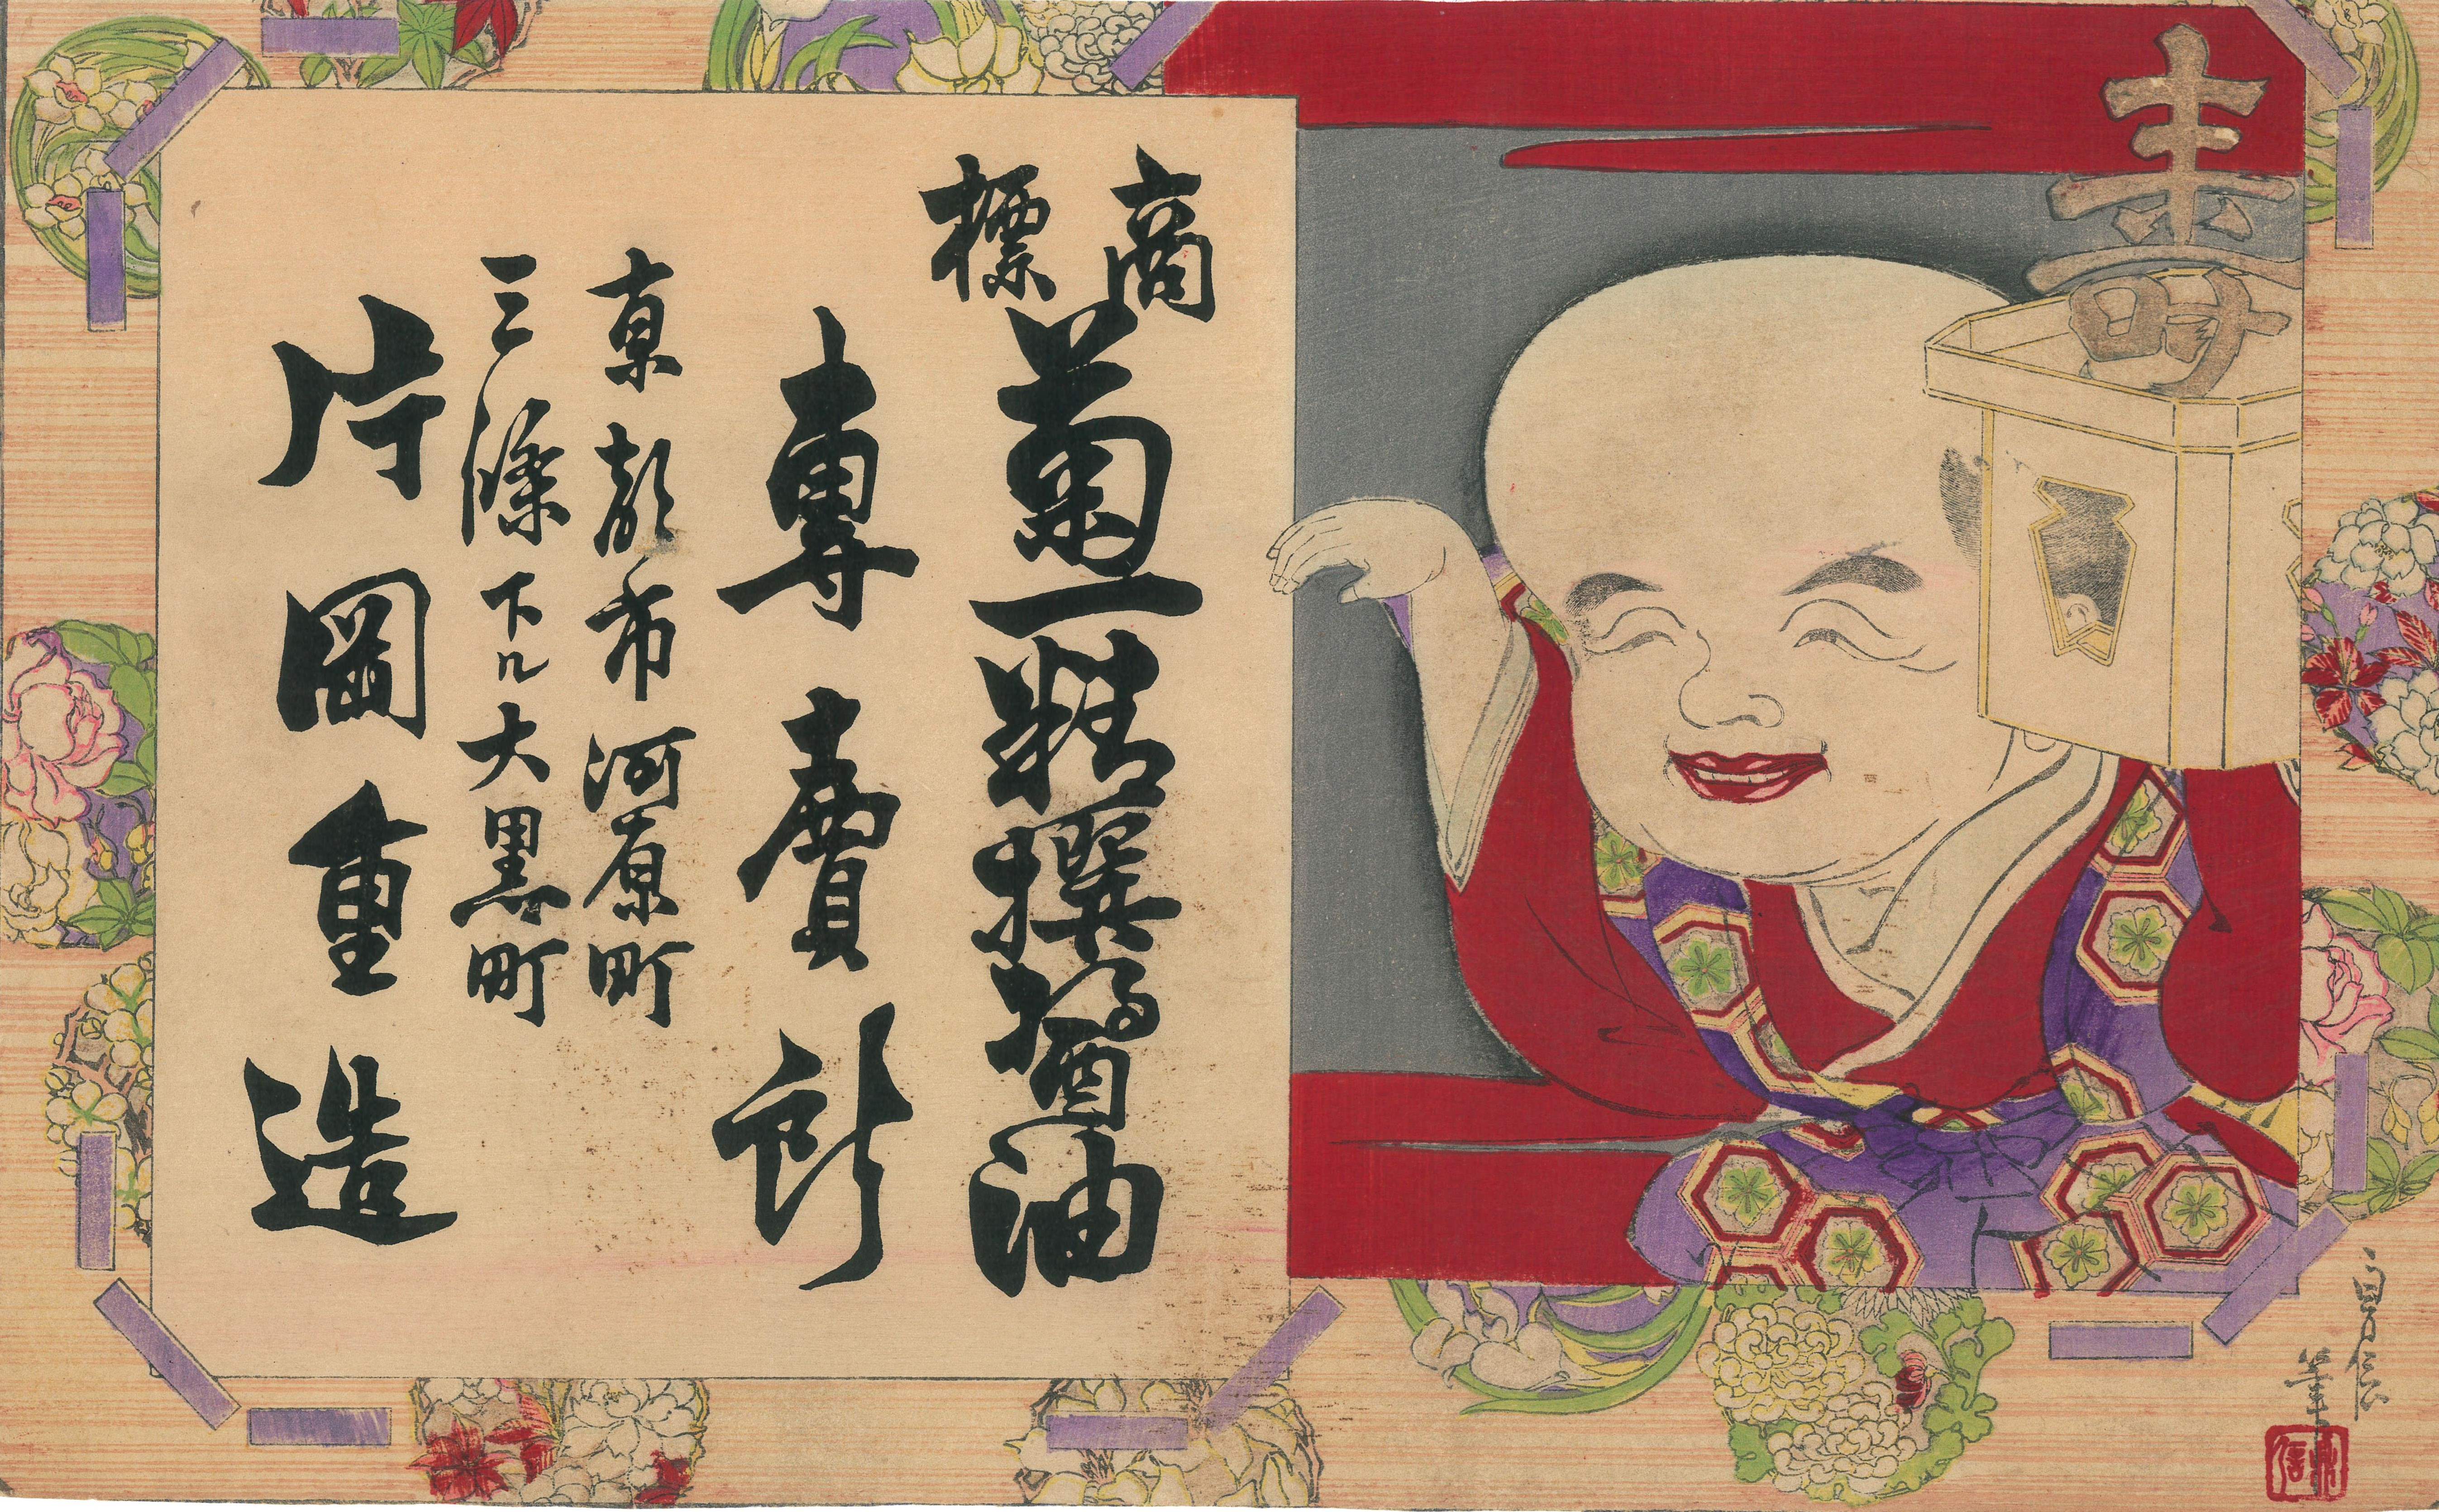 壽
商標
菊一精撰醬油
專賣所
京都市河原町
三條下ル大黒町
片岡重造
貞信筆